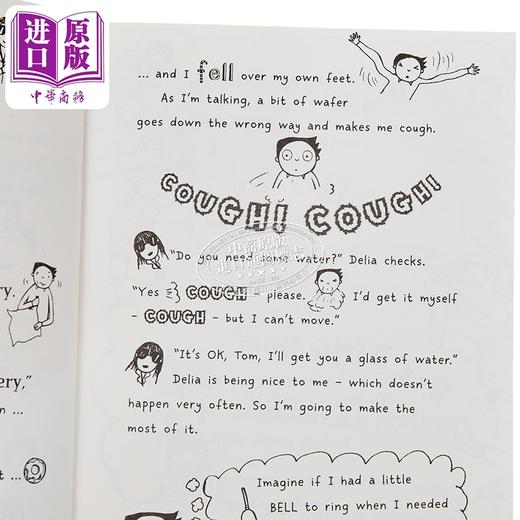 进口
原版
中华商务
... and I fell over my own feet.
As I'm talking, a bit of wafer
goes down the wrong way and makes me cough.
COUGH! COUGH!
"Do you need some water?" Delia checks.
"Yes COUGH - please. I'd get it myself
- COUGH - but I can't move."
"It's OK, Tom, I'll get you a glass of water."
Delia is being nice to me - which doesn't
happen very often. So I'm going to make the
most of it.
Imagine if I had a little
BELL to ring when I needed
ry.
ery,"
n ...
t ...